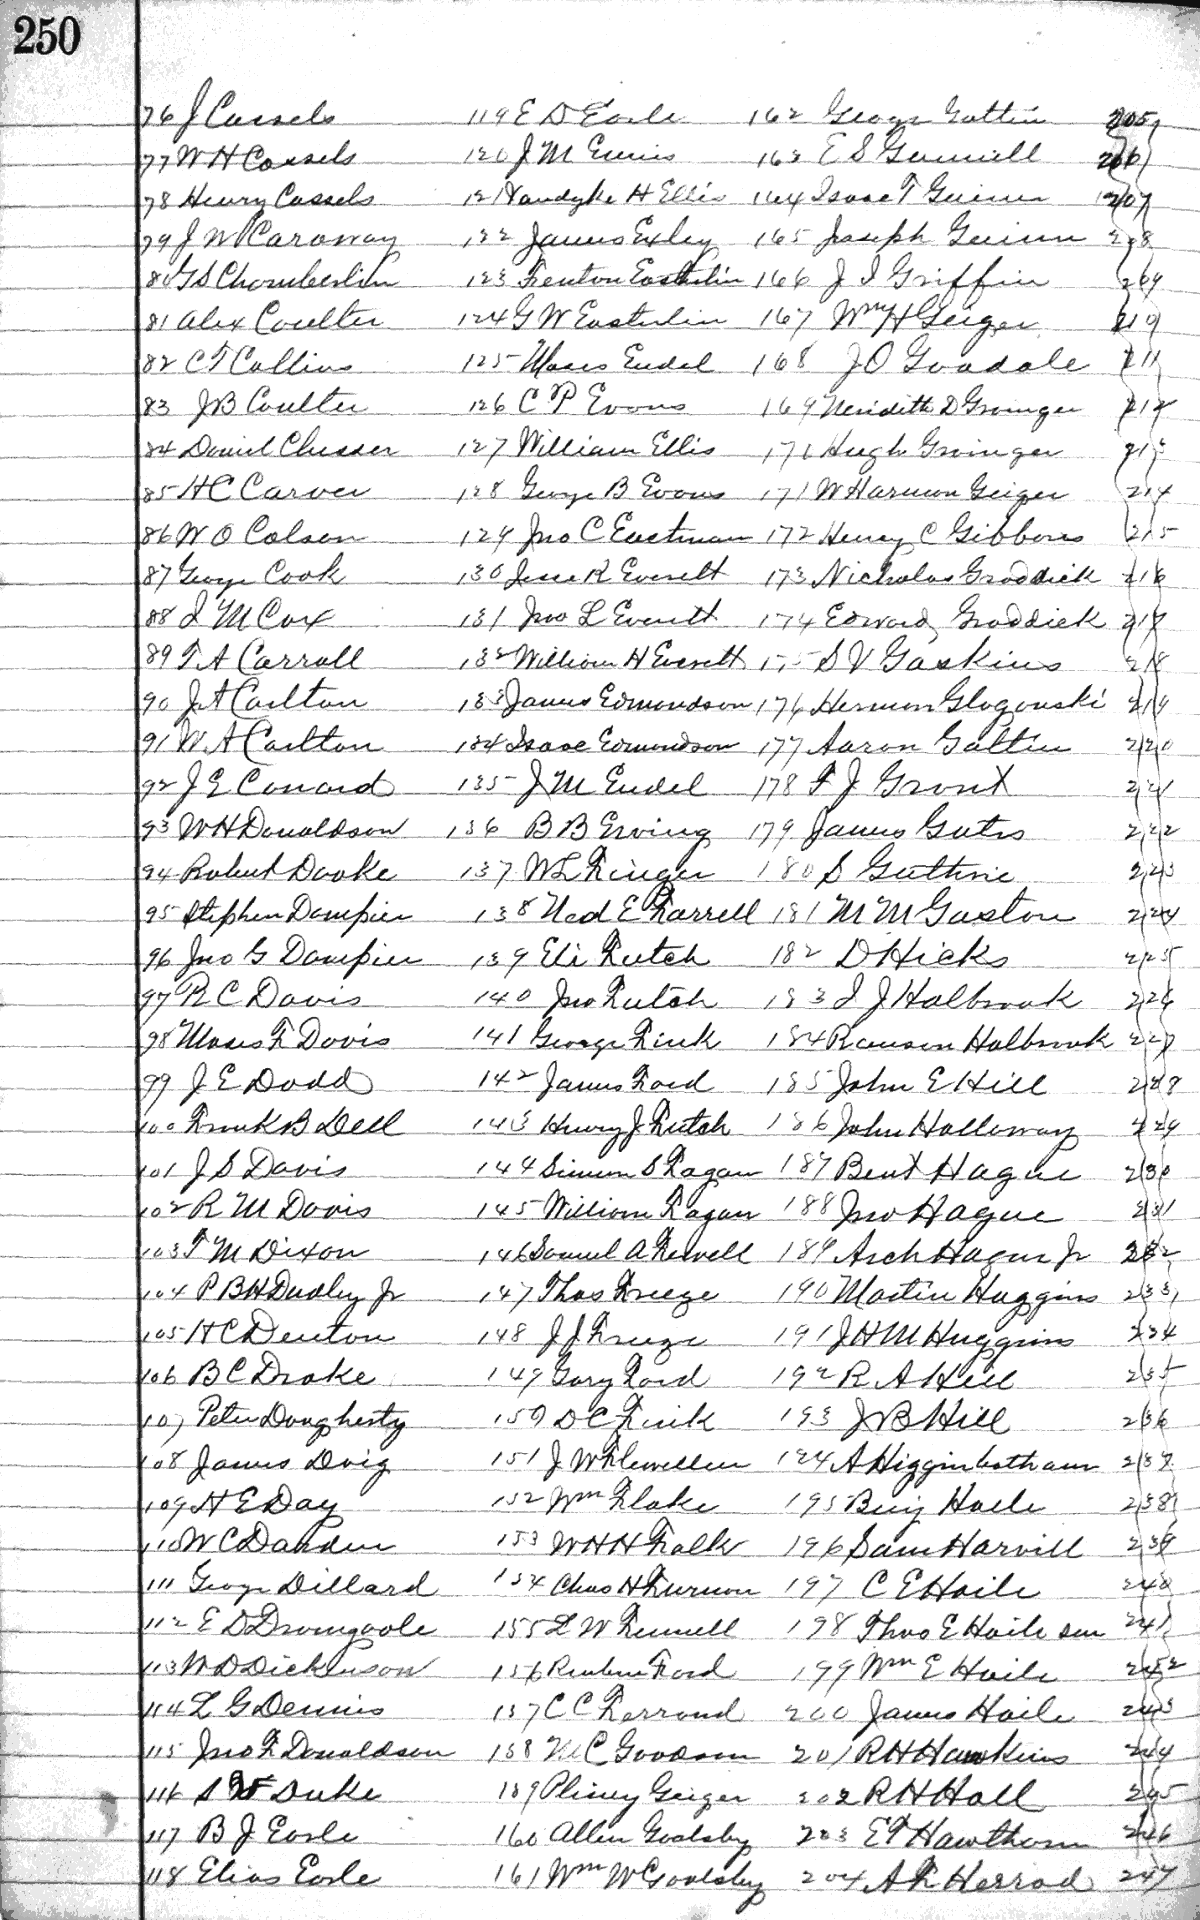 250
76 J Cassels 119 E D Earle 162 George Gattin 205
77 W H Cassels 120 J M Ennis 163 E S Gunnell 206
78 Henry Cassels 121 Vandyke H Ellis 164 Isaac T Guinn 207
79 J W Caraway 122 James Exley 165 Joseph Guinn 208
80 G S Chamberlin 123 Fenton Easterlin 166 J J Griffin 209
81 Alex Coulter 124 G W Easterlin 167 Wm H Geiger 210
82 C T Collins 125 Moses Endel 168 J O Goodale 211
83 J B Coulter 126 C P Evans 169 Meridith D Grainger 212
84 Daniel Chesser 127 William Ellis 170 Hugh Grainger 213
85 H C Carver 128 George B Evans 171 W Harmon Geiger 214
86 W O Colson 129 Jno C Eastman 172 Henry C Gibbons 215
87 George Cook 130 Jesse R Everett 173 Nicholas Graddick 216
88 J M Cox 131 Jno L Everett 174 Edward Graddick 217
89 T A Carroll 132 William H Everett 175 S V Gaskins 218
90 J A Carlton 133 James Edmondson 176 Herman Glogouski 219
91 W A Carlton 134 Isaac Edmondson 177 Aaron Galtin 220
92 J E Conard 135 J M Endel 178 F J Grant 221
93 W H Donaldson 136 B B Erving 179 James Gates 222
94 Robert Dooke 137 W L Finger 180 S Guthrie 223
95 Stephen Dampier 138 Ned E Farrell 181 M M Gaston 224
96 Jno G Dampier 139 Eli Futch 182 D Hicks 225
97 R C Davis 140 Jno Futch 183 J J Halbrook 226
98 Moses F Davis 141 George Fink 184 Ranson Halbrook 227
99 J E Dodd 142 James Ford 185 John E Hill 228
100 Frank B Dell 143 Henry J Futch 186 John Halloway 229
101 J S Davis 144 Simeon S Fagan 187 Bent Hague 230
102 R M Davis 145 William Fagan 188 Jno Hague 231
103 T M Dixon 146 Samuel A Fewell 189 Arch Hague Jr 232
104 P B H Dudley Jr 147 Thos Freeze 190 Martin Huggins 233
105 H C Denton 148 J J Freeze 191 J H M Huggins 234
106 B C Drake 149 Gary Ford 192 R A Hill 235
107 Peter Dougherty 150 D C Fink 193 J B Hill 236
108 James Doig 151 J W Flewellen 194 A Higginbotham 237
109 H E Day 152 Wm Flake 195 Benj Haile 238
110 W C Darden 153 W H H Falk 196 Sam Harvill 239
111 George Dillard 154 Chas H Furman 197 C E Haile 240
112 E D Dromgoole 155 L W Fennell 198 Thos E Haile sen 241
113 W D Dickinson 156 Reuben Ford 199 Wm E Haile 242
114 L G Dennis 157 C C Ferrand 200 James Haile 243
115 Jno F Donaldson 158 M C Goodson 201 R H Hawkins 244
116 S Duke 159 Pliney Geiger 202 R H Hall 245
117 B J Earle 160 Allen Goolsby 203 E T Hawthorn 246
118 Elias Earle 161 Wm W Goolsby 204 A F Herrod 247